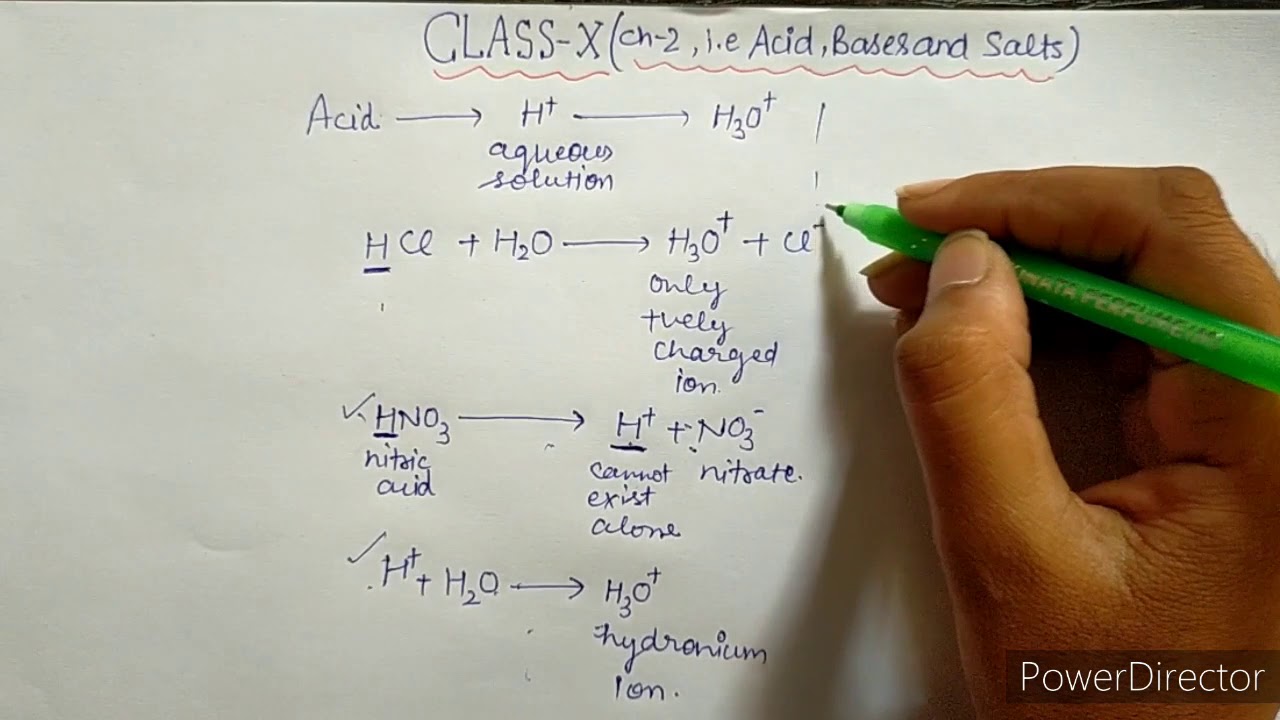 CLASS-X (Ch-2, i.e Acid, Bases and Salts)
Acid ⟶ H⁺ ⟶ H₃O⁺
aqueous
solution
HCl + H₂O ⟶ H₃O⁺ + Cl⁻
only
+vely
charged
ion.
✓ HNO₃ ⟶ H⁺ + NO₃⁻
nitric
acid
cannot
exist
alone
nitrate.
✓ H⁺ + H₂O ⟶ H₃O⁺
hydronium
ion.
PowerDirector